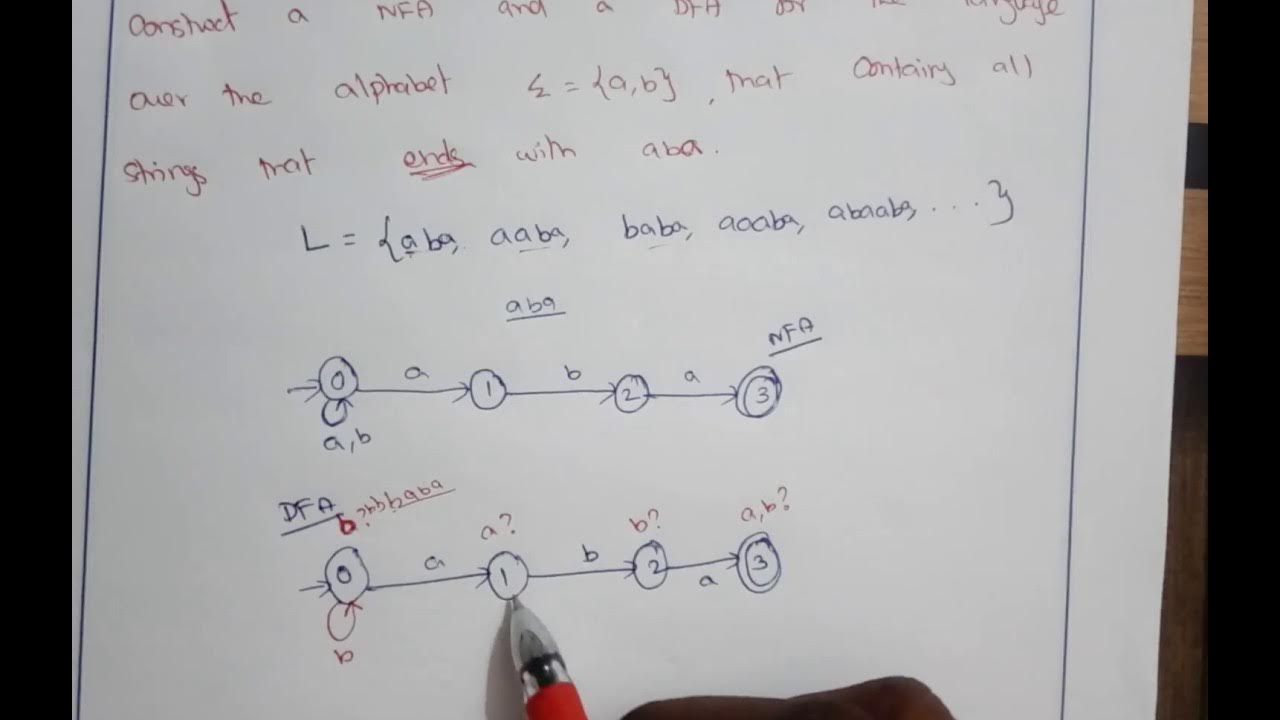 Construct a NFA and a DFA for the language
over the alphabet Σ = {a,b}, that contains all
strings that ends with aba.
L = {aba, aaba, baba, aoaba, abaaba, ....}
aba
NFA
0 a 1 b 2 a 3
a,b
DFA
b? bbbaba a? b? a,b?
0 a 1 b 2 a 3
b